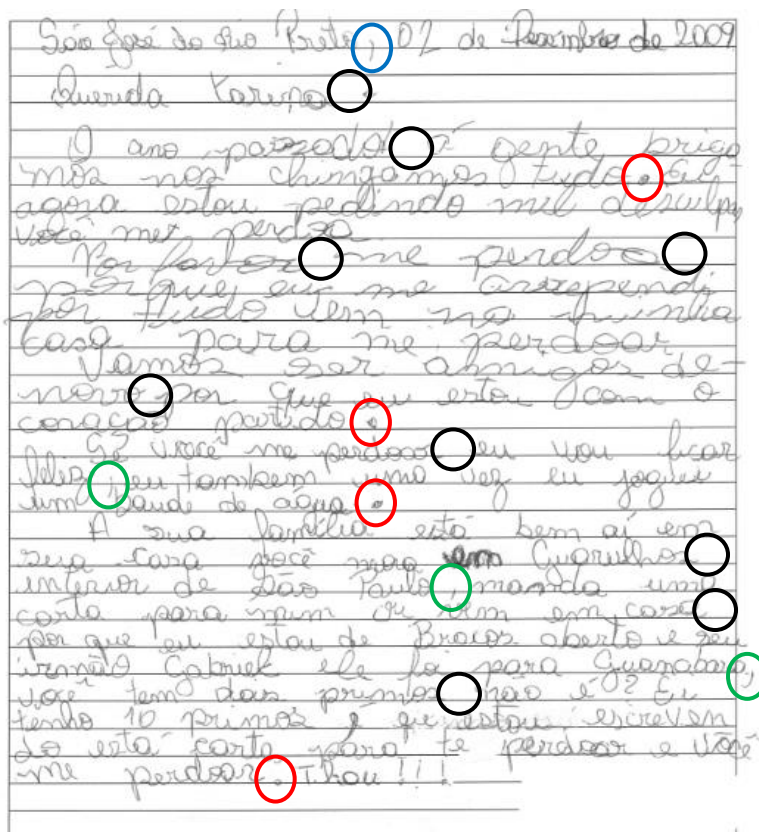 São José do Rio Preto, 02 de Dezembro de 2009
Querida Karina
O ano passado a gente briga
mos nos chingamos tudo. Eu,
agora estou pedindo mil desculpa,
você me perdoa
Por favor me perdoa
porque eu me arrependi
por tudo vem na minha
casa para me perdoar
Vamos ser amigos de-
novo por que eu estou com o
coração partido.
Sé você me perdoar eu vou ficar
feliz, eu tambem uma vez eu joguei
um baude de agua.
A sua família está bem aí em
sua casa você mora em Guarulhos
interior de São Paulo, manda uma
carta para mim ou vem em casa
por que eu estou de Braços aberto e seu
irmão Gabriek ele foi para Guanabara,
você tem dois primos não é? Eu
tenho 10 primos e que estou escreven
do está carta para te perdoar e você
me perdoar. Thau!!!